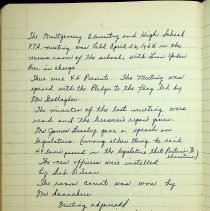 The Montgomery Elementary and High School
P.T.A. meeting was held April 26, 1965 in the
music room of the school, with
Pres. in charge
There were 45 Present. The Meeting was
opened with the Pledge to the flag led by
Mr Gallagher.
The minutes of the last meeting were
read and the treasurer's report given.
Mr James Beasley gave a speech on
legislature (among other things he said
bills passed in the legislature that Pertain to
education)
The new officers were installed
by
The room count was won by
Mrs
Meeting adjourned